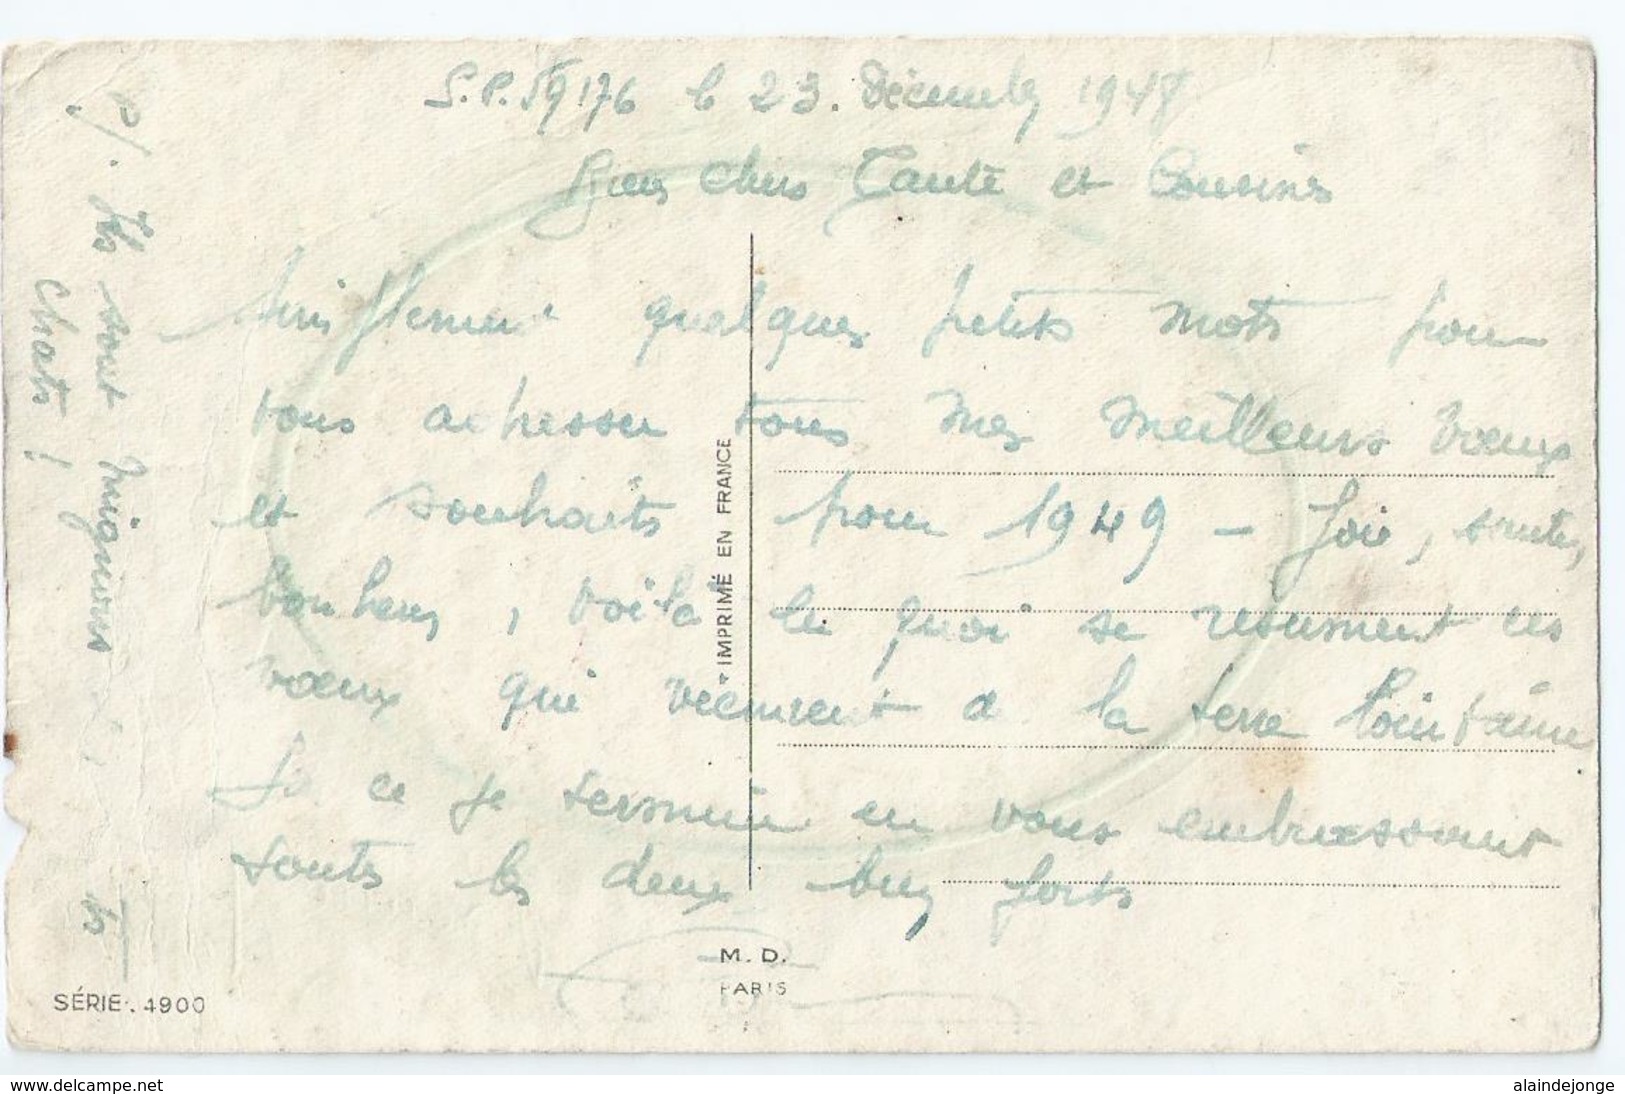 S.P. 59176 le 23. Décembre 1948
Bien chers Tante et Cousines
Simplement quelques petits mots pour
vous adresser tous mes meilleurs vœux
et souhaits pour 1949 - Joie, santé,
bonheur, voilà en quoi se résument ces
vœux qui viennent de la terre lointaine
Sur ce je termine en vous embrassant
toutes les deux bien forts
P/. Ils sont mignons
chats !
IMPRIMÉ EN FRANCE
M. D.
PARIS
SÉRIE. 4900
www.delcampe.net
alaindejonge